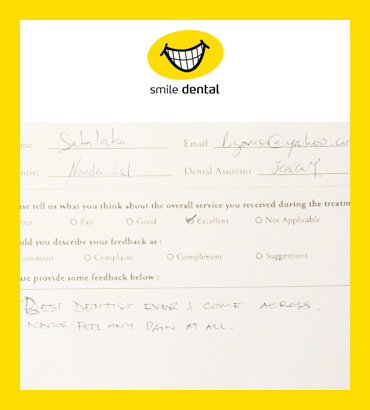 smile dental
me Email
ntist Dental Assistant
ase tell us what you think about the overall service you received during the treatm
Poor Fair Good Excellent Not Applicable
uld you describe your feedback as :
Comment Complaint Compliment Suggestions
ase provide some feedback below :
BEST DENTIST EVER I COME ACROSS.
NEVER FEEL ANY PAIN AT ALL.